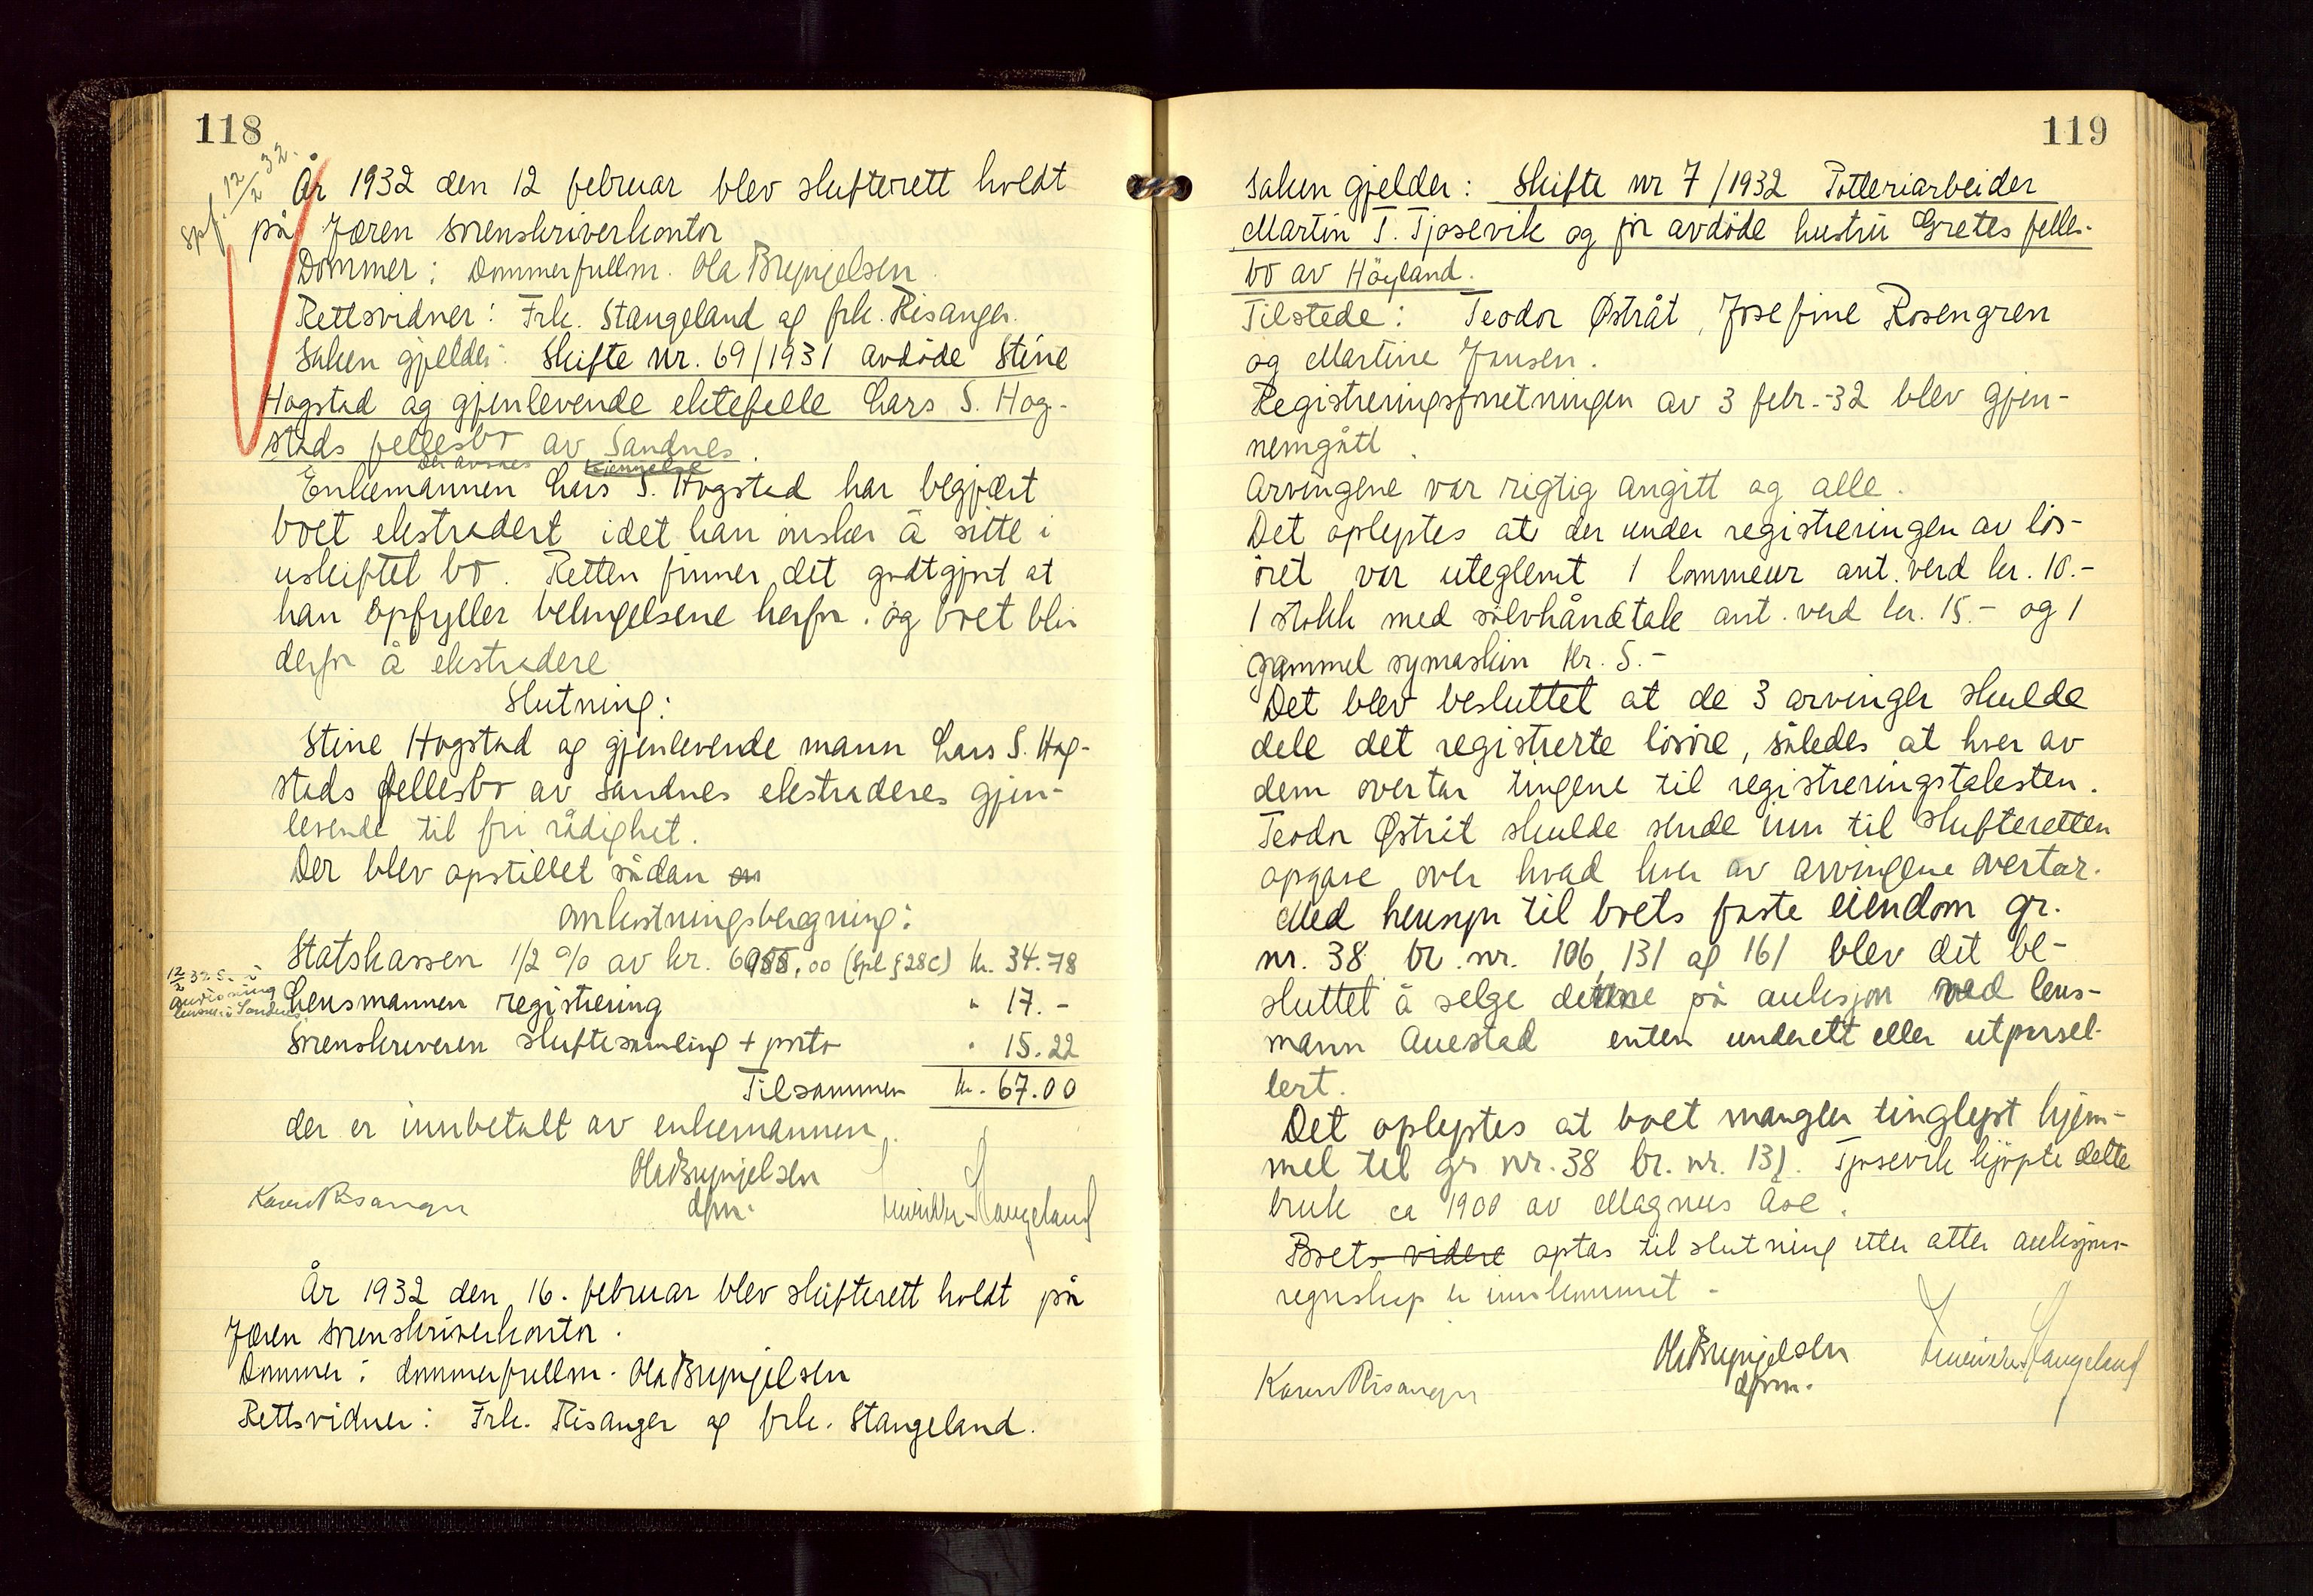 118
Spf. 12/2 32.
År 1932 den 12 februar blev skifterett holdt
på Jæren sorenskriverkontor
Dommer: Dommerfullm. Ola Brynjelsen
Rettsvidner: Frk. Stangeland og frk. Risanger.
Saken gjelder: Skifte nr. 69/1931 avdöde Stine
Hogstad og gjenlevende ektefelle Lars S. Hog-
stads fellesbo av Sandnes.
Der avsaes kjennelse
Enkemannen Lars S. Hogstad har begjært
boet ekstradert idet han önsker å sitte i
uskiftet bo. Retten finner det godtgjort at
han opfyller betingelsene herfor. og boet blir
derfor å ekstradere
Slutning:
Stine Hogstad og gjenlevende mann Lars S. Hog-
stads fellesbo av Sandnes ekstraderes gjen-
levende til fri rådighet.
Der blev opstillet sådan en
omkostningsberegning:
Statskassen 1/2 % av kr. 6955,00 (Spl § 28c) kr. 34.78
12/2 32 S. i
anvisning
lensm. i Sandnes.
Lensmannen registrering " 17.-
Sorenskriveren skiftesamling + porto " 15.22
Tilsammen kr. 67.00
der er innbetalt av enkemannen.
Ola Brynjelsen
dfm.
Karen Risanger
Stangeland
År 1932 den 16. februar blev skifterett holdt på
Jæren sorenskriverkontor.
Dommer: dommerfullm. Ola Brynjelsen
Rettsvidner: Frk. Risanger og frk. Stangeland.
119
Saken gjelder: Skifte nr 7/1932 Potteriarbeider
Martin T. Tjosevik og för avdöde hustru Gretes felles-
bo av Höyland.
Tilstede: Teodor Østråt, Josefine Rosengren
og Martine Jonsen.
Registreringsforretningen av 3 febr.-32 blev gjen-
nemgått.
Arvingene var rigtig angitt og alle.
Det oplystes at der under registreringen av lös-
öret var uteglemt 1 lommeur ant. verd kr. 10.-
1 stokk med sölvhåndtak ant. verd kr. 15.- og 1
gammel symaskin kr. 5.-
Det blev besluttet at de 3 arvinger skulde
dele det registrerte lösöre, således at hver av
dem overtar tingene til registreringstaksten.
Teodor Østråt skulde sende inn til skifteretten
opgave over hvad hver av arvingene overtar.
Med hensyn til boets faste eiendom gr.
nr. 38 br. nr. 106, 131 og 161 blev det be-
sluttet å selge denne på auksjon ved lens-
mann Auestad enten underett eller utparsel-
lert.
Det oplystes at boet mangler tinglyst hjem-
mel til gr nr. 38 br. nr. 131. Tjosevik kjöpte dette
bruk ca 1900 av Magnus Åse.
Boets videre optas til slutning etter atter auksjons-
regnskap er innkommet -
Ola Brynjelsen
dfm.
Karen Risanger
Stangeland